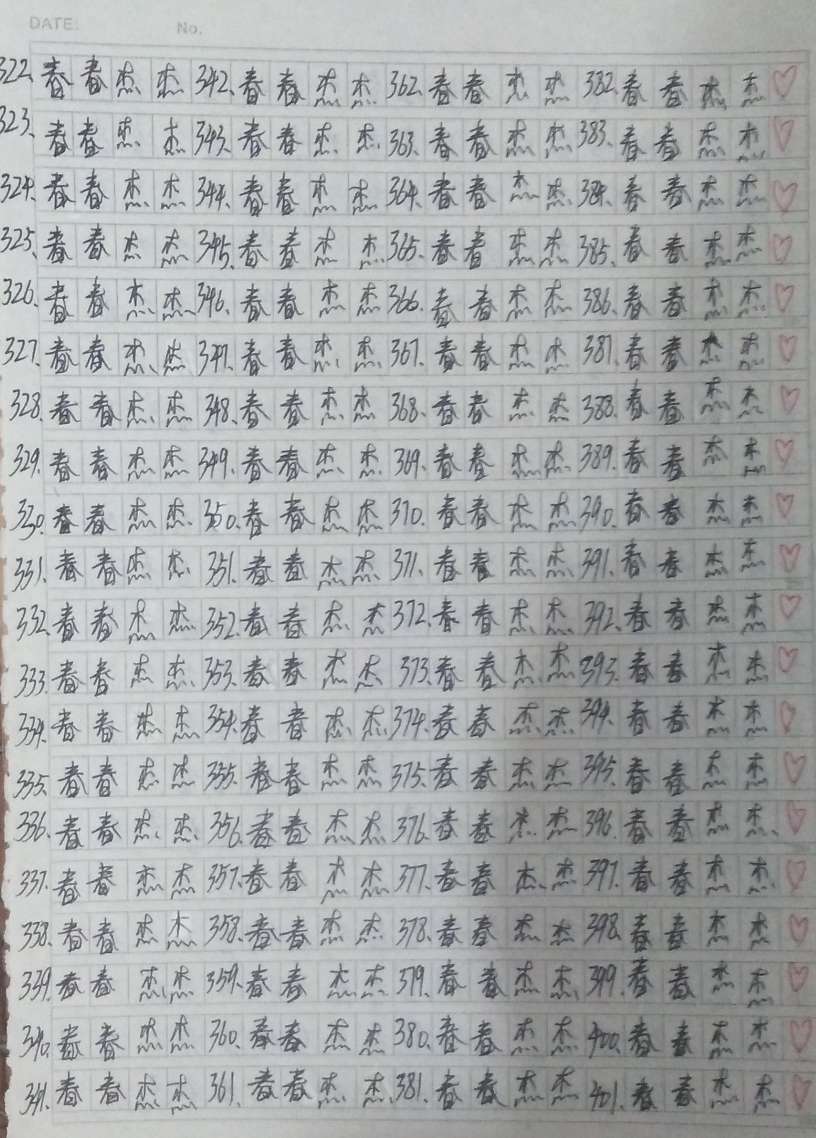 DATE: No.
322. 春春杰杰 342. 春春杰杰 362. 春春杰杰 382. 春春杰杰
323. 春春杰杰 343. 春春杰杰 363. 春春杰杰 383. 春春杰杰
324. 春春杰杰 344. 春春杰杰 364. 春春杰杰 384. 春春杰杰
325. 春春杰杰 345. 春春杰杰 365. 春春杰杰 385. 春春杰杰
326. 春春杰杰 346. 春春杰杰 366. 春春杰杰 386. 春春杰杰
327. 春春杰杰 347. 春春杰杰 367. 春春杰杰 387. 春春杰杰
328. 春春杰杰 348. 春春杰杰 368. 春春杰杰 388. 春春杰杰
329. 春春杰杰 349. 春春杰杰 369. 春春杰杰 389. 春春杰杰
330. 春春杰杰 350. 春春杰杰 370. 春春杰杰 390. 春春杰杰
331. 春春杰杰 351. 春春杰杰 371. 春春杰杰 391. 春春杰杰
332. 春春杰杰 352. 春春杰杰 372. 春春杰杰 392. 春春杰杰
333. 春春杰杰 353. 春春杰杰 373. 春春杰杰 393. 春春杰杰
334. 春春杰杰 354. 春春杰杰 374. 春春杰杰 394. 春春杰杰
335. 春春杰杰 355. 春春杰杰 375. 春春杰杰 395. 春春杰杰
336. 春春杰杰 356. 春春杰杰 376. 春春杰杰 396. 春春杰杰
337. 春春杰杰 357. 春春杰杰 377. 春春杰杰 397. 春春杰杰
338. 春春杰杰 358. 春春杰杰 378. 春春杰杰 398. 春春杰杰
339. 春春杰杰 359. 春春杰杰 379. 春春杰杰 399. 春春杰杰
340. 春春杰杰 360. 春春杰杰 380. 春春杰杰 400. 春春杰杰
341. 春春杰杰 361. 春春杰杰 381. 春春杰杰 401. 春春杰杰